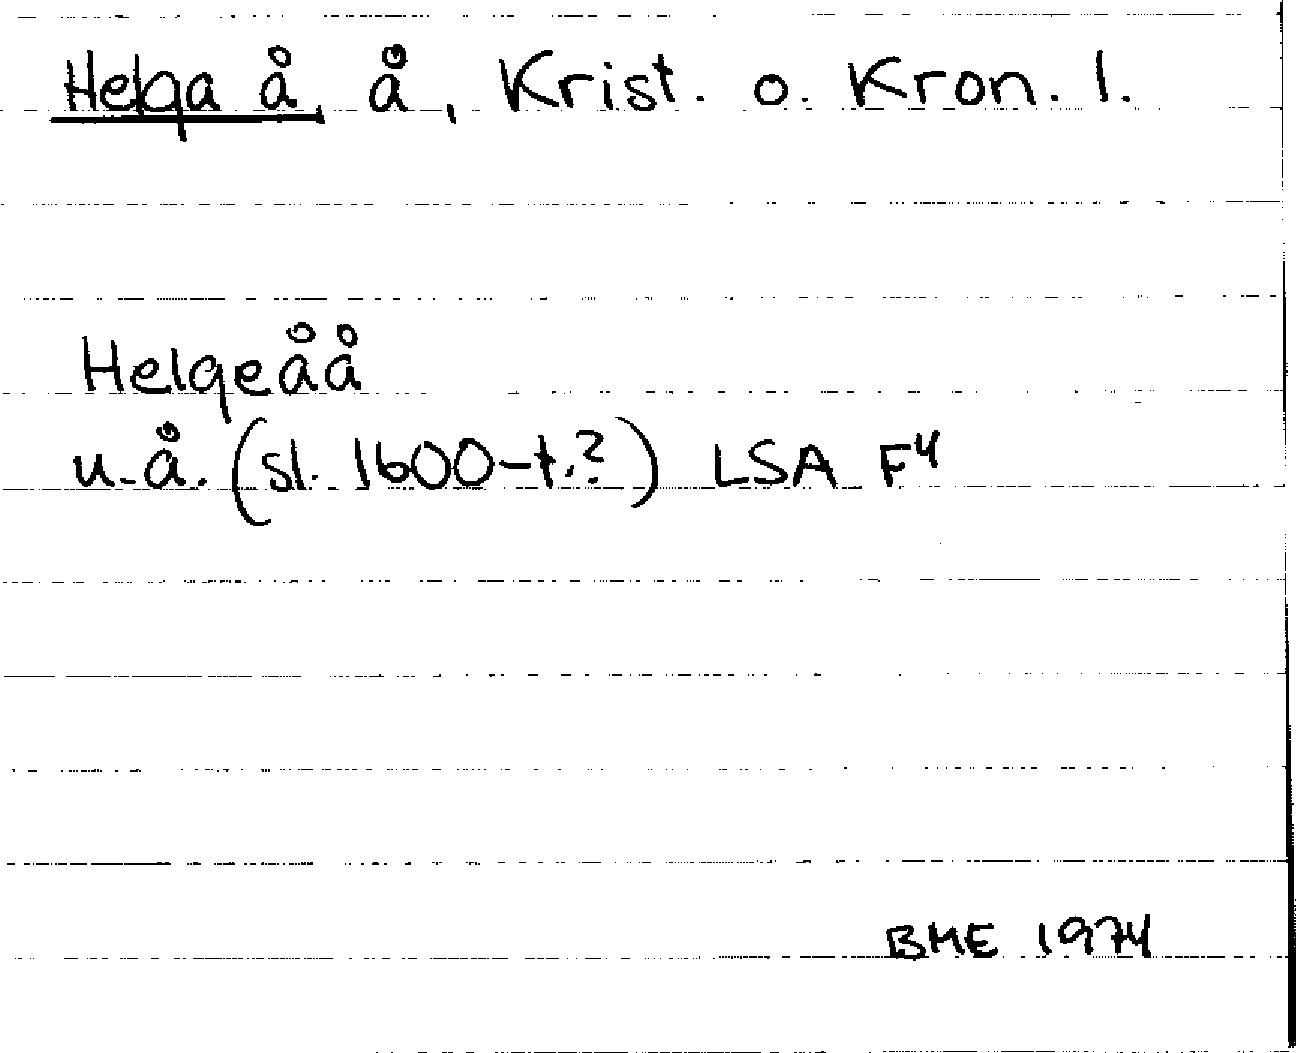 Helga å, å, Krist. o. Kron. l.
Helgeåå
u.å. (sl. 1600-t.?) LSA F4
BME 1974